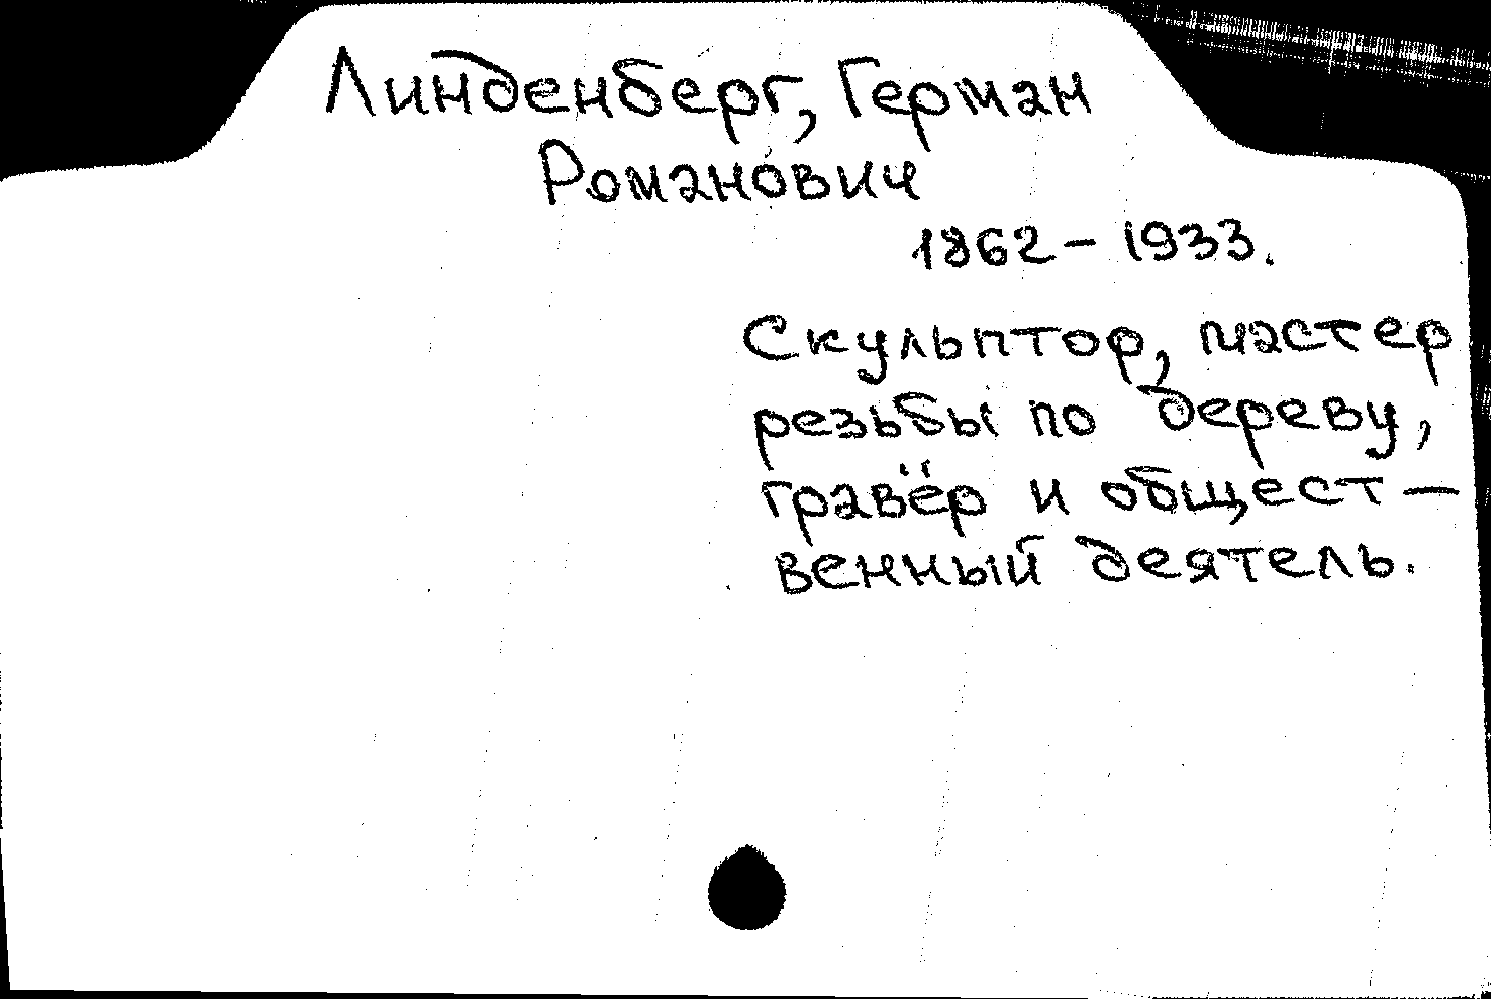 Линденберг, Герман
Романович
1862 – 1933.
Скульптор, мастер
резьбы по дереву,
гравёр и общест –
венный деятель.